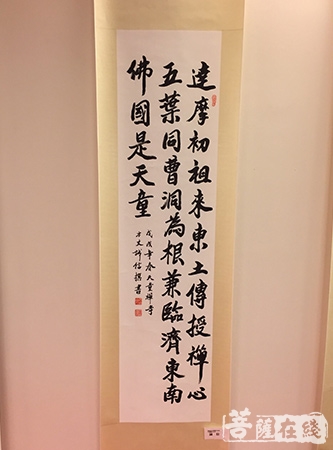 達摩初祖来東土傳授禪心
五葉同曹洞為根兼臨濟東南
佛國是天童
戊戌年春天童禪寺
方丈誠信撰書
菩萨在线